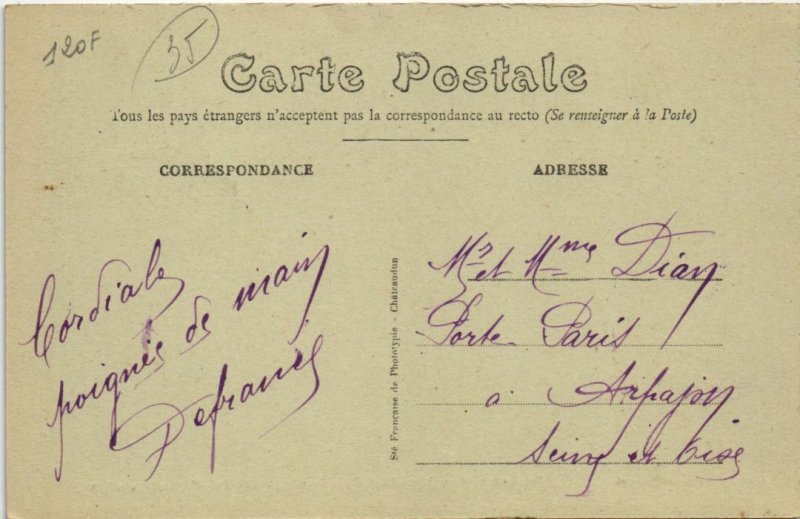 120F
35
Carte Postale
Tous les pays étrangers n'acceptent pas la correspondance au recto (Se renseigner à la Poste)
CORRESPONDANCE
Cordiale
poignée de main
Defrance
Sté Française de Phototypie - Châteaudun
ADRESSE
Mr et Mme Dian
Porte Paris
à Arpajon
Seine et Oise